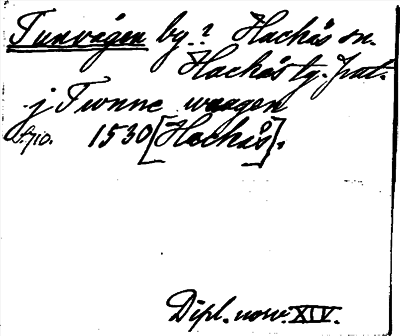 Tunvågen by.? Hackås sn.
Hackås tg. Jmt.
j Twnne waagen
s. 710. 1530 [Hackås].
Dipl. norv. XIV.